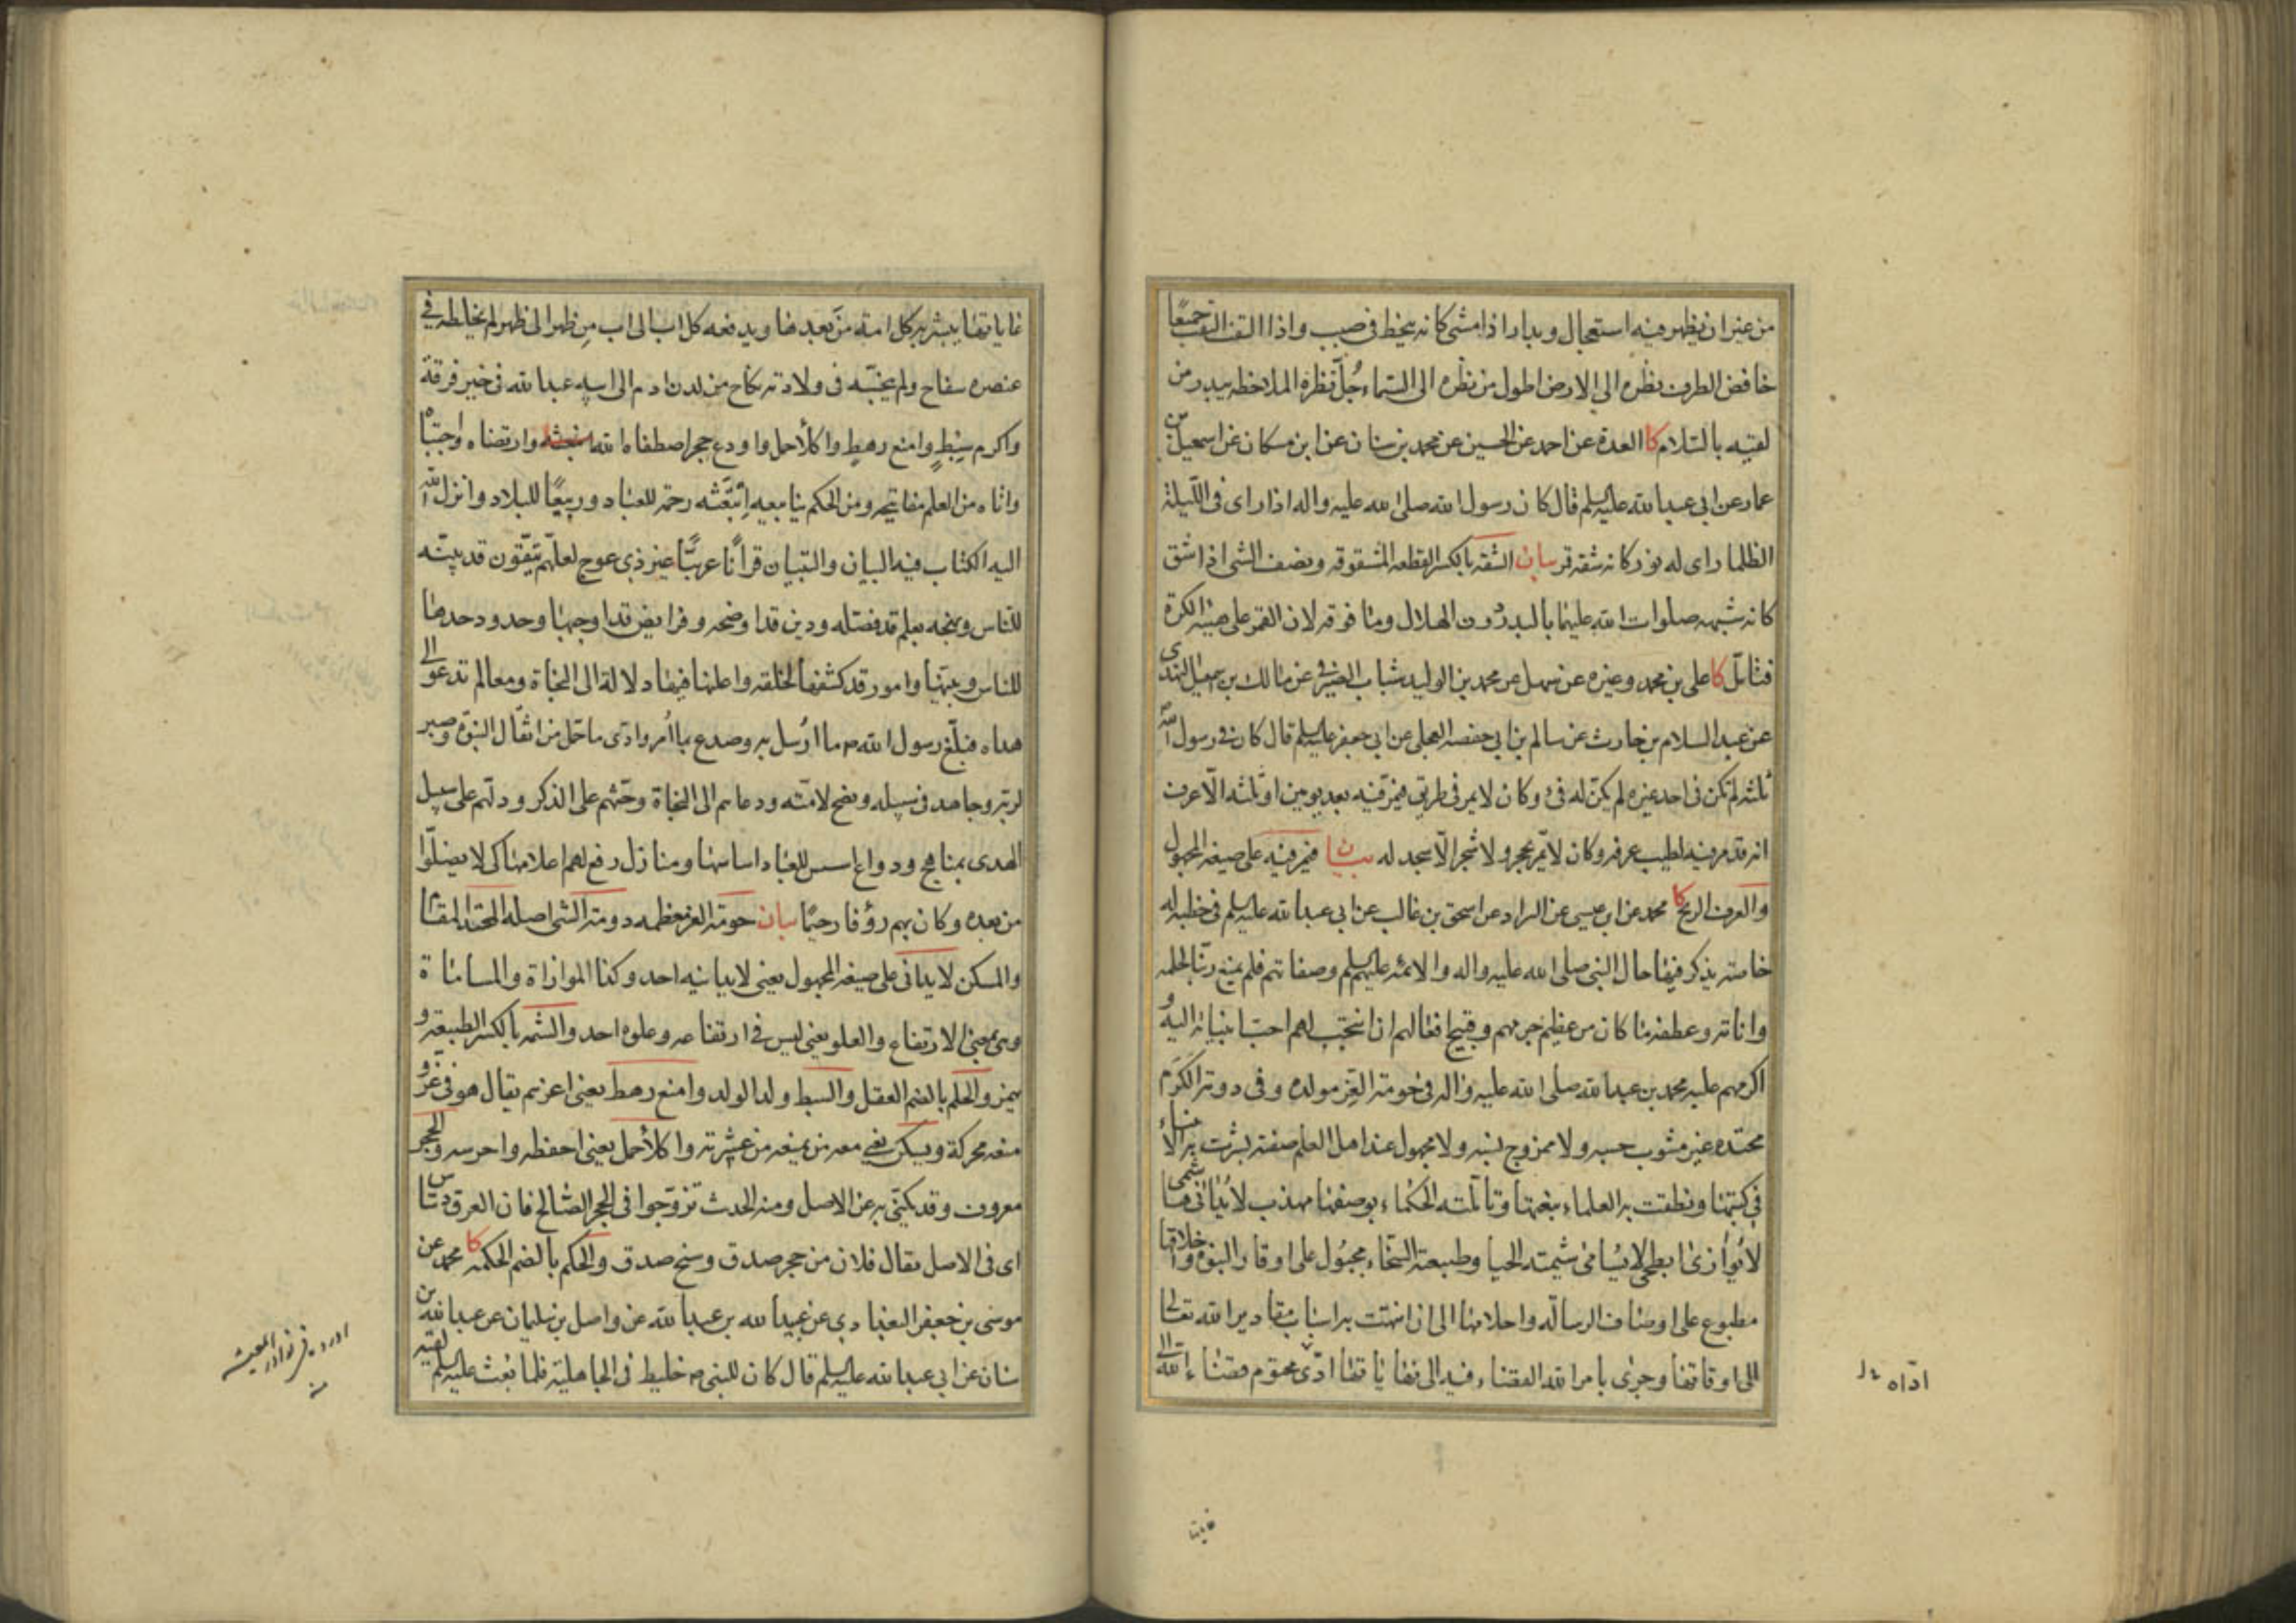 من غير ان يظهر منه استعجال وبدار اذا مشى كانه ينحط فى صبب واذا التفت التفت جميعًا
خافض الطرف نظره الى الارض اطول من نظره الى السماء جُلّ نظره الملاحظه يبدر من
لقيه بالسّلام كا العدة عن احمد عن الحسين عن محمد بن سنان عن ابن مسكان عن اسمعيل بن
عمار عن ابى عبدالله عليه السلم قال كان رسول الله صلى الله عليه واله اذا راى فى اللّيلة
الظلما راى له نور كانه شقه قمر بيان الشقه بالكسر القطعه المشقوقه ونصف الشى اذا شق
كانه شبهه صلوات الله عليهما بالبدر دون الهلال وما فوقه لان القمر على هيئه الكرة
فتامّل كا على بن محمد وغيره عن سهل عن محمد بن الوليد شباب الصيرفى عن مالك بن اسمعيل النهدى
عن عبد السلام بن حارث عن سالم بن ابى حفصه العجلى عن ابى جعفر عليه السلم قال كان فى رسول الله ص
ثلثه لم تكن فى احد غيره لم يكن له فئ وكان لا يمر فى طريق فيمرّ فيه بعد يومين او ثلثه الّا عرف
انه قد مر فيه لطيب عرفه وكان لا يمّر بحجر ولا شجر الّا سجد له بيان فيمر فيه على صيغه المجهول
والعرف الريح كا محمد عن ابن عيسى عن السراد عن اسحق بن غالب عن ابى عبدالله عليه السلم فى خطبه له
خاصته يذكر فيها حال النبى صلى الله عليه واله والائمّه عليهم السلم وصفاتهم فلم يمنع ربّنا لحلمه
واناته وعطفه ما كان من عظيم جرمهم وقبيح افعالهم ان انتجب لهم احبّ انبيائه اليه و
اكرمهم عليه محمد بن عبدالله صلى الله عليه واله فى حومة العِزّ مولده وفى دومة الكَرَم
محتده غير مشوب حسبه ولا ممزوج نسبه ولا مجهول عند اهل العلم صفته بشّرت به الانبياء
فى كتبها ونطقت به العلماء بنعتها وتاَملته الحكماء بوصفها مهذب لا يُدانى هاشمى
لا يُوازى ابطحى لا يُسامى شيمته الحيا وطبيعته السّخاء مجبُول على اوقار النبوّه واخلاقها
مطبوع على اوصاف الرساله واحلامها الى ان انتهت به اسباب مقادير الله تعالى
الى اوقاتها وجرى بامر الله القضاء فيه الى نهاياتها ادّى محتوم قضاء الله الى
ادّاه
غاياتها
غاياتها يبشر به كل امته من بعدها ويدفعه كل اب الى اب من ظهر الى ظهر لم يخلطه فى
عنصره سفاح ولم ينجّسه فى ولادته نكاح من لدن ادم الى ابيه عبدالله فى خير فرقة
واكرم سِبطٍ وامنع رهطٍ واكلأ حمل واودع حجر اصطفاه الله وارتضاه واجتباه
واتاه من العلم مفاتيحه ومن الحكم ينابيعه اِبتَعَثه رحمة للعباد وربيعًا للبلاد وانزل الله
اليه الكتاب فيه البيان والتبيان قرأنًا عربيًّا غير ذى عوج لعلّهم يتّقون قد بيّنه
للنّاس ونهجه بعلم قد فصّله ودين قد اوضحه وفرايض قد اوجبها وحدود حدها
للناس وبيّنها وامور قد كشفها لخلقه واعلنها فيها دلالة الى النجاة ومعالم تدعوا الى
هداه فبلّغ رسول الله ص ما ارُسل به وصدع بما اُمر وادّى ما حمّل من اثقال النبوّة وصبر
لربّه وجاهد فى سبيله ونصح لامّته ودعاهم الى النجاة وحثّهم على الذكر ودلّهم على سبيل
الهدى بمناهج ودواع اسس للعباد اساسها ومنازل رفع لهم اعلامها كى لا يضلّوا
من بعده وكان بهم رؤفا رحيمًا بيان حومة العز معظمه دومة الشى اصله المحتد المقام
والمسكن لا يدانى على صيغه المجهول يعنى لا يدانيه احد وكذا الموازاة والمساماة
وهى بمعنى الارتفاع والعلو يعنى ليس فى ارتفاعه وعلوه احد والشيمه بالكسر الطبيعة و
يهمز والحلم بالضم العقل والسبط ولد الولد وامنع رهط يعنى اعزهم يقال هو فى عزّ و
منعه محركة ويسكن يعنى معه من يمنعه من عشيرته واكلأ حمل يعنى احفظه واحرسه والحجر
معروف وقد يكنّى به عن الاصل ومنه الحدث تزوّجوا فى الحجر الصّالح فان العرق دسّاس
اى فى الاصل يقال فلان من حجر صدق وسنخ صدق والحكم بالضم الحكمة كا محمد عن
موسى بن جعفر البغدادى عن عبيد الله بن عبدالله عن واصل بن سليمان عن عبدالله بن
سنان عن ابى عبدالله عليه السلم قال كان للنبى ص خليط فى الجاهلية فلما بعث عليه السلم لقيه